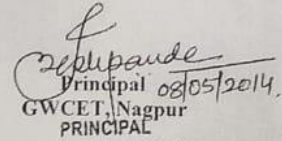 Principal 08/05/2014.
GWCET, Nagpur
PRINCIPAL